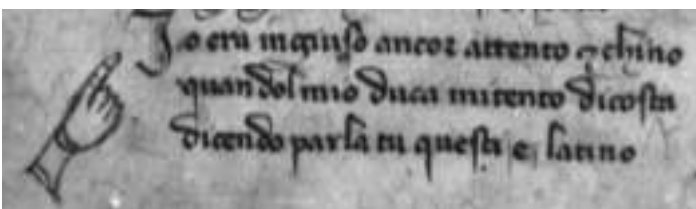 Io era ingiuso ancor attento et chino
quandol mio duca mi tento di costa
dicendo parla tu questi e latino